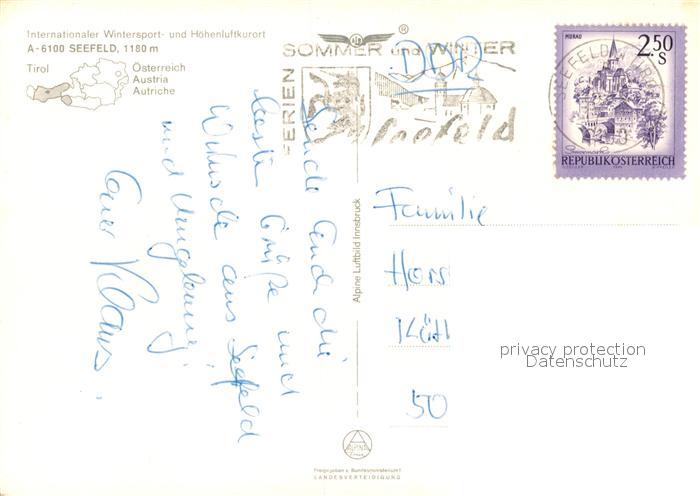 Internationaler Wintersport- und Höhenluftkurort
A-6100 SEEFELD, 1180 m
Tirol
Österreich
Austria
Autriche
SOMMER und WINTER
FERIEN
Seefeld
DDR
MURAU
2.50
S
SEEFELD
REPUBLIK ÖSTERREICH
Sende Euch die
besten Grüße und
Wünsche aus Seefeld
und Umgebung,
Euer Klaus.
Alpine Luftbild Innsbruck
Familie
Hors
50
privacy protection
Datenschutz
ALPINE
Freigegeben v. Bundesministerium f.
LANDESVERTEIDIGUNG